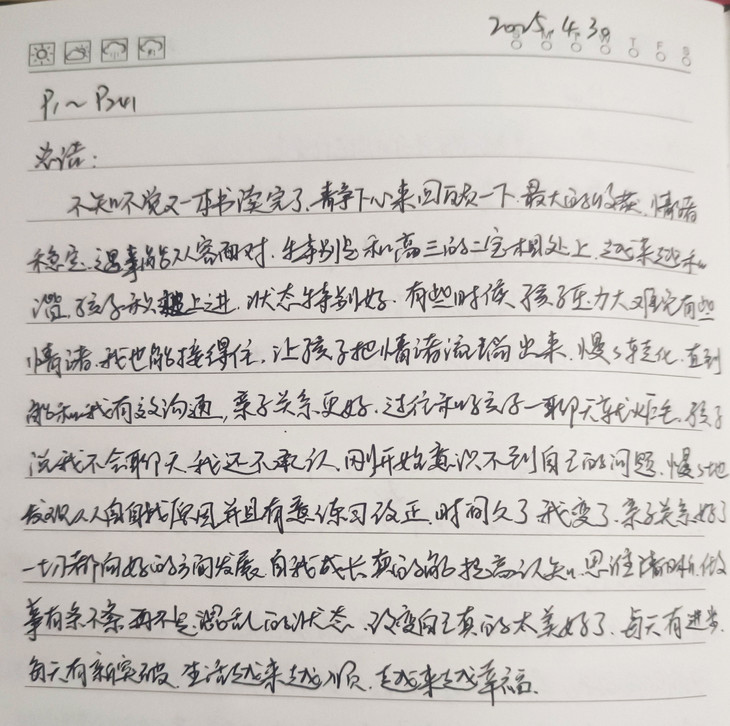 2025.4.3日
M T F S
P1~P241
总结:
不知不觉又一本书读完了,静下心来回顾一下,最大的收获,情绪
稳定,遇事能从容面对,特别是和高三的二宝相处上,越来越和
谐,孩子积极上进,状态特别好,有些时候,孩子压力大难免有些
情绪,我也能接得住,让孩子把情绪流淌出来,慢慢转化,直到
能和我有效沟通,亲子关系更好,过往和孩子一聊天就炸毛,孩子
说我不会聊天,我还不承认,刚开始意识不到自己的问题,慢慢地
发现从自身找原因并且有意练习改正,时间久了我变了,亲子关系好了
一切都向好的方向发展,自我成长真的能提高认知,思维清晰,做
事有条不紊,再不是混乱的状态,改变自己真的太美好了,每天有进步,
每天有新突破,生活越来越顺,越来越幸福.